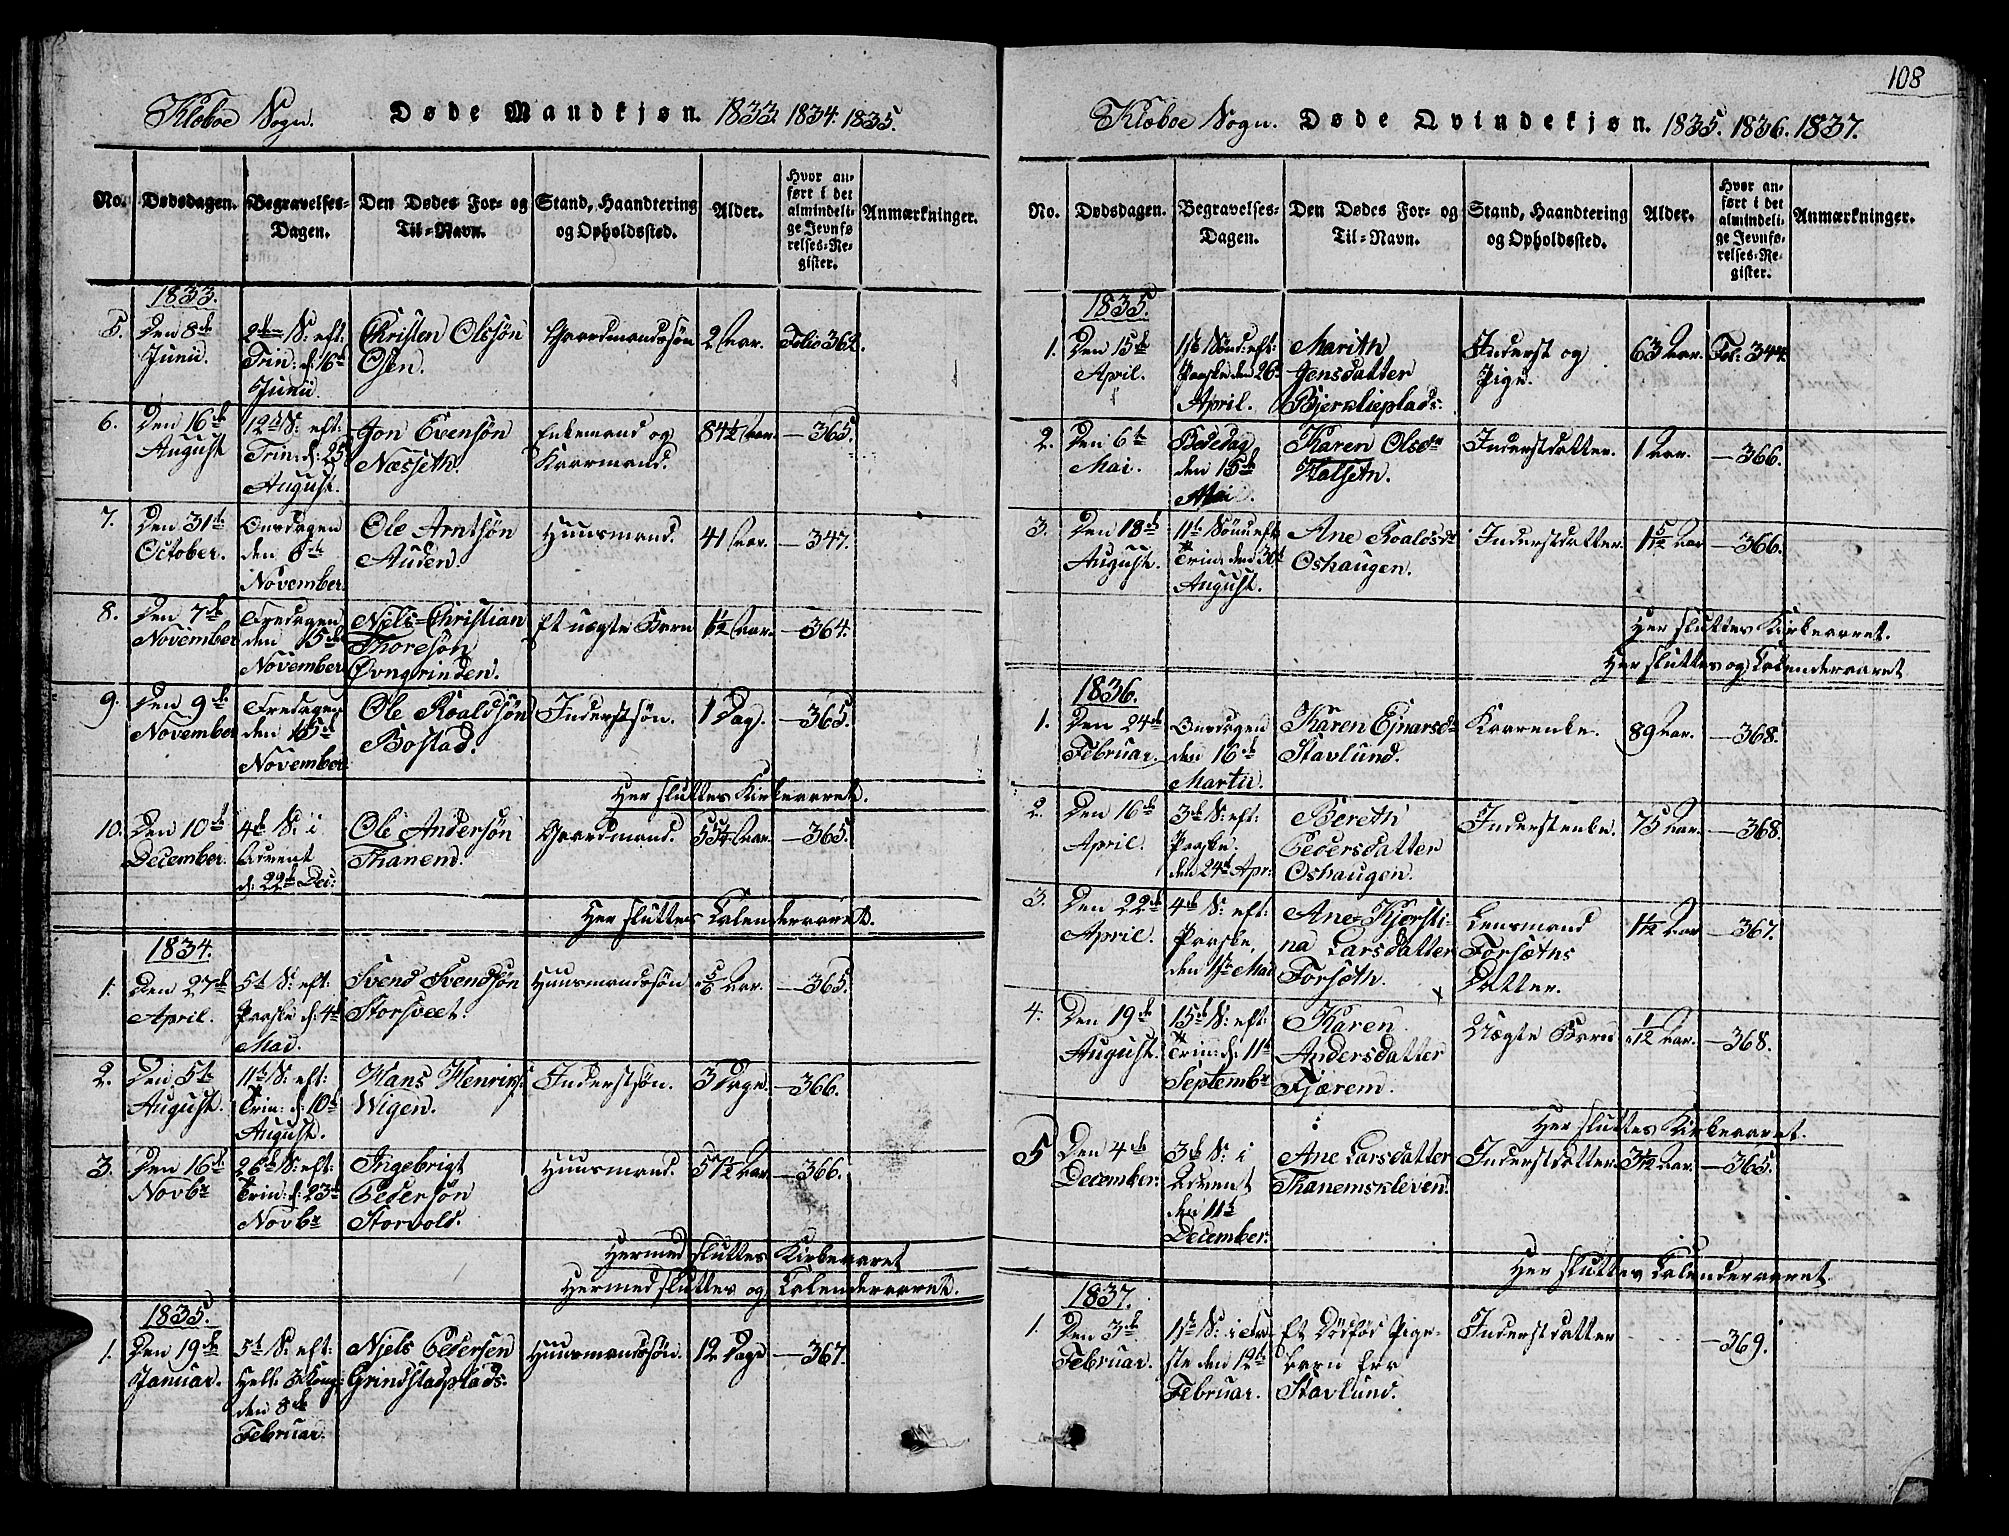 Klæboe Sogn. Døde Mandkjøn. 1833. 1834. 1835.
No. Dødsdagen. Begravelses-Dagen. Den Dødes For- og Til-Navn. Stand, Haandtering og Opholdssted. Alder. Hvor anført i det almindelige Jevnførelses-Register. Anmærkninger.
1833.
5. Den 8de Junii. 2den S: eft: Trin: d: 16de Junii Christen Olssøn Osen. Gaardmandssøn 2 Aar. Folio 364.
6. Den 16de August 12te S: eft: Trin: d: 25 August. Jon Evensøn Næsseth. Enkemand og Kaarmand. 84½ Aar. —365.
7. Den 31te October. Onsdagen den 6te November. Ole Arntsøn Auden. Huusmand. 41 Aar. —347.
8. Den 7de November Fredagen den 15de November Niels-Christian Thoresøn Øvngrinden. Et uægte Barn 1½ Aar. —364.
9. Den 9de November Fredagen den 15de November Ole Roaldsøn Bostad. Inderstsøn. 1 Dag. —365.
Her sluttes Kirkeaaret.
10. Den 10de December. 4de S: i Advent d: 22de Dec: Ole Andersøn Thanem. Gaardmand. 55¼ Aar. —365.
Her sluttes Calenderaaret.
1834.
1. Den 27de April. 5te S: eft: Paaske d: 4de Mai. Svend Svendsøn Storsveet. Huusmandssøn 5/6 Aar. —365.
2. Den 5te August. 11te S: eft: Trin: d: 10de August. Hans Henriks: Wigen. Inderstsøn. 3 Dage. —366.
3. Den 16de Novbr 26de S: eft: Trin: d: 23de Novbr Ingebrigt Pedersøn Storvold. Huusmand. 57½ Aar —366.
Hermed sluttes Kirkeaaret
Hermed sluttes og Calenderaaret.
1835.
1. Den 19de Januar. 5te S: eft Hell: 3 Kong: den 8de Februar. Niels Pedersen Grindstadplads. Huusmandssøn. 12 Dage —367.
108
Klæboe Sogn. Døde Qvindekjøn. 1835. 1836. 1837.
No. Dødsdagen. Begravelses-Dagen. Den Dødes For- og Til-Navn. Stand, Haandtering og Opholdssted. Alder. Hvor anført i det almindelige Jevnførelses-Register. Anmærkninger.
1835.
1. Den 15de April. 1ste Sønd: eft: Paaske den 26de April. Marith Jensdatter Bjerklieplads: Inderst og Pige. 63 Aar. Fol: 344.
2. Den 6te Mai. Bededag den 15de Mai. Karen Olsdr Halseth. Inderstdatter. 1 Aar. —366.
3. Den 18de August. 11te Sønd: eft Trin: den 30te August. Ane Roaldsdr Oshaugen. Inderstdatter. 1 5/12 Aar —366.
Her sluttes Kirkeaaret.
Her sluttes og Calenderaaret
1836.
1. Den 24de Februar. Onsdagen den 16de Martii. Karen Ejnarsdr Stavlund. Kaarenke. 89 Aar. —368.
2. Den 16de April. 3de S: eft: Paaske. den 24de Apr: Bereth Pedersdatter Oshaugen. Inderstenke. 75 Aar. —368.
3. Den 22de April. 4de S: eft: Paaske den 1ste Mai Ane Kjersti-na Larsdatter Forsæth. Lensmand Forsæths Datter. 1½ Aar —367.
4. Den 19de August. 15de S: eft: Trin: d: 11te Septembr Karen Andersdatter Fjærem. Uægte Barn 1/12 Aar. —368.
Her sluttes Kirkeaaret.
5 Den 4de December: 3de S: i Advent den 11te December: Ane Larsdatter Thanemskleven. Inderstdatter. 3½ Aar. —365.
Her sluttes Calenderaaret.
1837.
1. Den 3de Februar. 1ste S: i Fa-ste den 12te Februar. Et dødfød Pige-barn fra Stavlund. Inderstdatter —369.